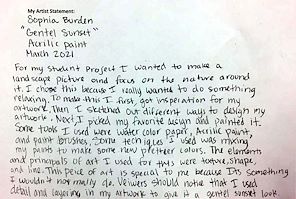 My Artist Statement:
Sophia Burden
"Gentel Sunset"
Acrilic paint
March 2021
For my student project I wanted to make a
landscape picture and focus on the nature around
it. I chose this because I really wanted to do something
relaxing. To make this I first, got insperation for my
artwork. Then I sketched out different ways to design my
artwork. Next, I picked my favorite design and painted it.
Some tools I used were water color paper, Acrilic paint,
and paint brushes. Some techniques I used was mixing
my paints to make some new prettier colors. The elements
and principals of art I used for this were texture, shape,
and line. This piece of art is special to me because Its something
I wouldn't not really do. Veiwers should note that I used
detail and layering in my artwork to give it a gentel sunset look.